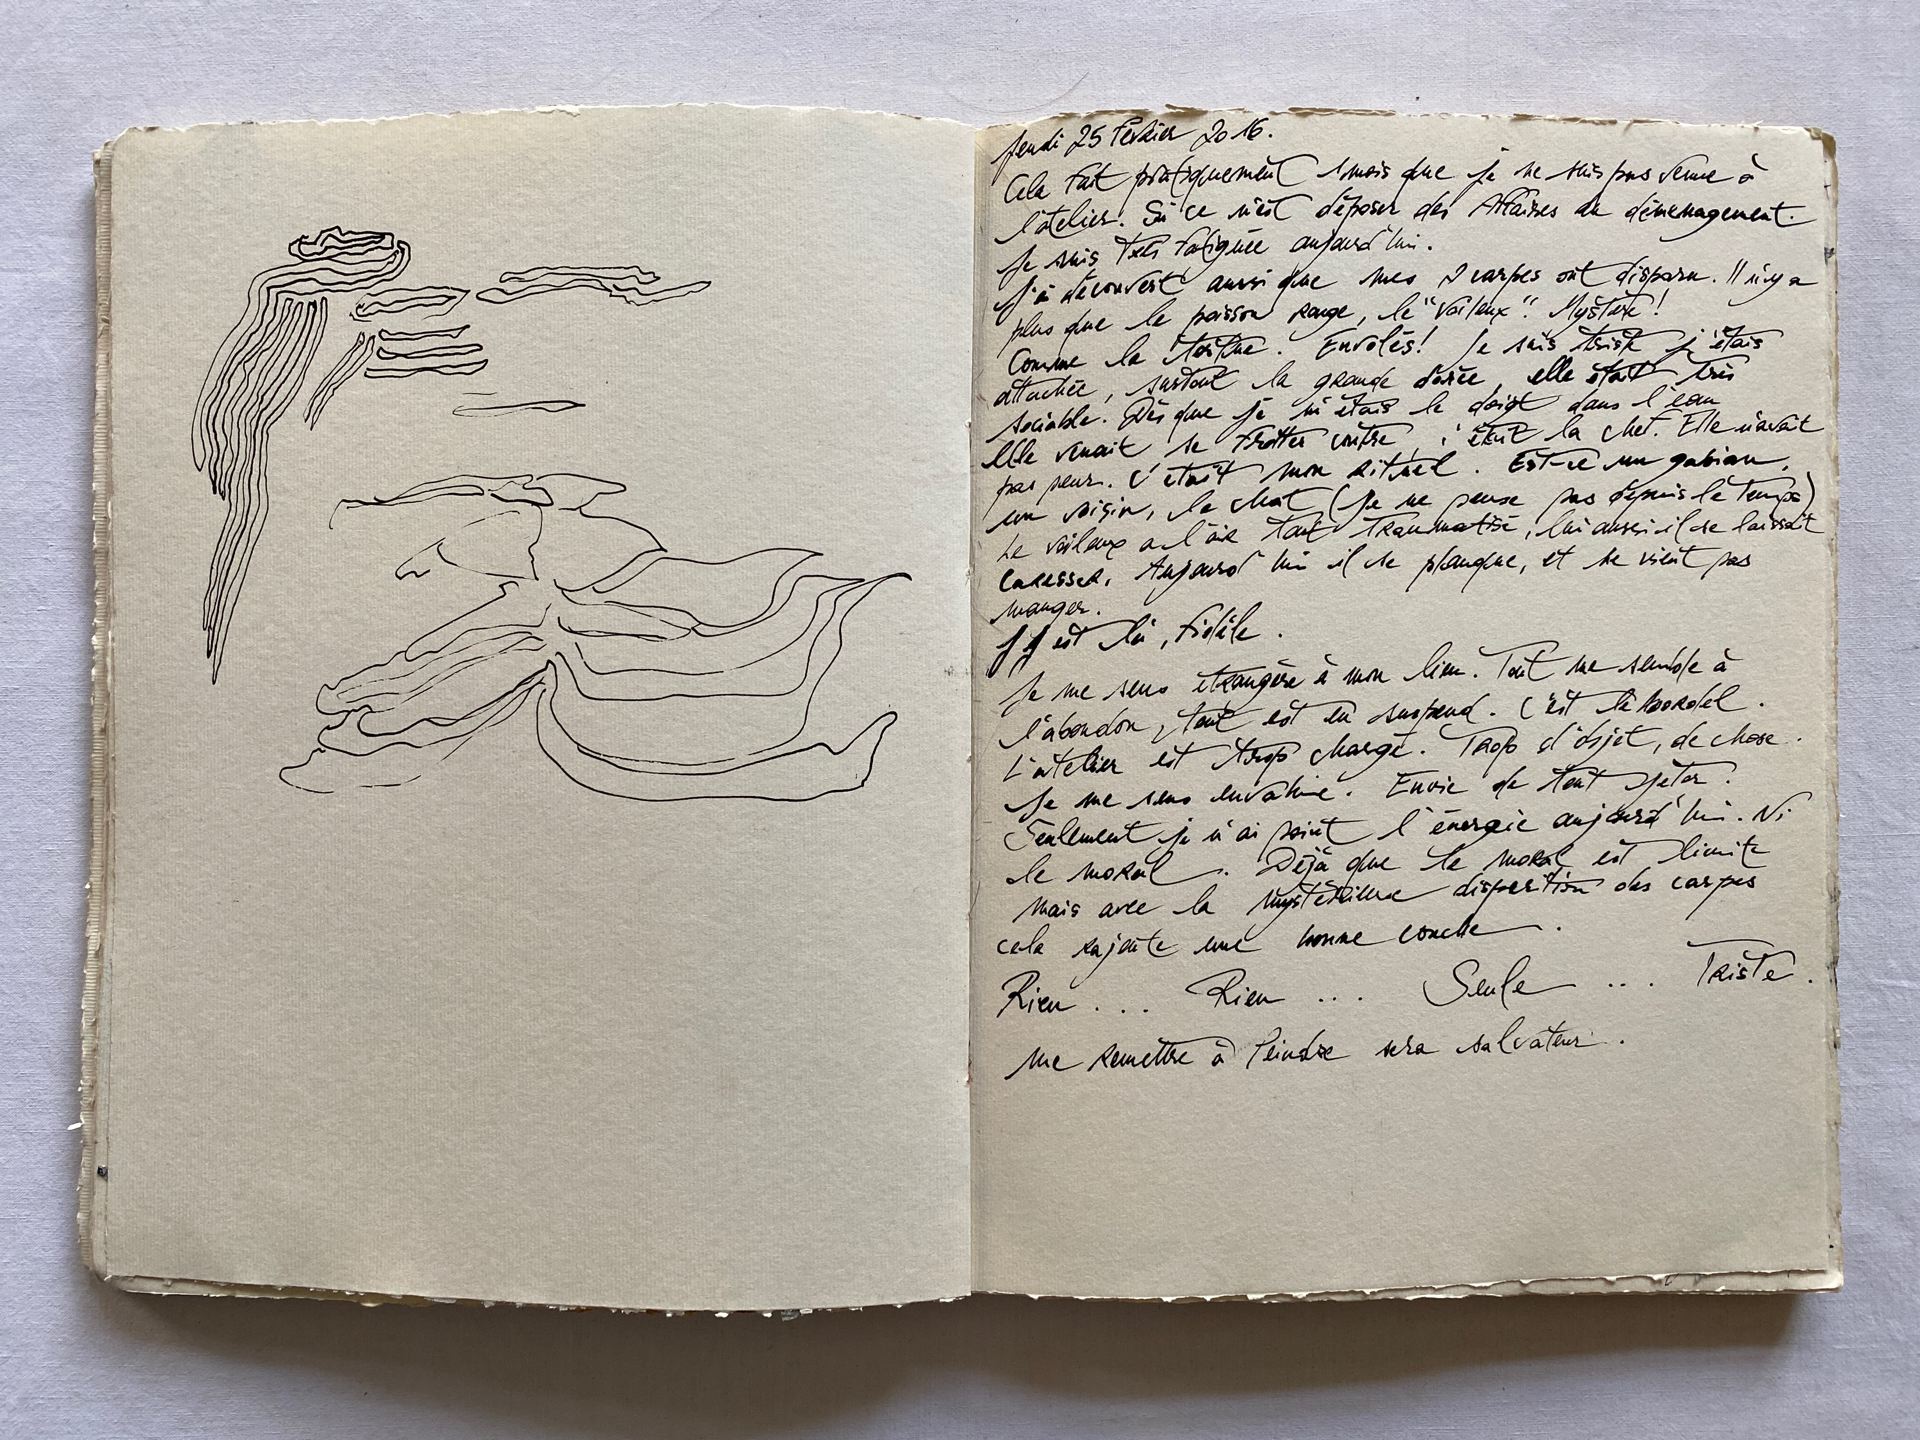 Jeudi 25 Février 2016.
Cela fait pratiquement 1 mois que je ne suis pas venue à
l'atelier. Si ce n'est déposer des affaires du déménagement.
Je suis très fatiguée aujourd'hui.
J'ai découvert aussi que mes 2 carpes ont disparu. Il n'y a
plus que le poisson rouge, le "voileux". Mystère!
Comme la tortue. Envolés! Je suis triste j'étais
attachée, surtout la grande dorée, elle était très
sociable. Dès que je mettais le doigt dans l'eau
elle venait se frotter contre, c'était la chef. Elle n'avait
pas peur. C'était mon rituel. Est-ce un gabian,
un voisin, le chat (je ne pense pas depuis le temps)
Le voileux a l'air tout traumatisé, lui aussi il se laissait
caresser. Aujourd'hui il se planque, et ne vient pas
manger.
JJ est là, fidèle.
Je me sens étrangère à mon lieu. Tout me semble à
l'abandon, tout est en suspend. C'est le bordel.
L'atelier est trop chargé. Trop d'objet, de chose.
Je me sens envahie. Envie de tout jeter.
Seulement je n'ai point l'énergie aujourd'hui. Ni
le moral. Déjà que le moral est limite
mais avec la mystérieuse disparition des carpes
cela rajoute une bonne couche.
Rien ... Rien ... Seule ... Triste.
me remettre à Peindre sera salvateur.